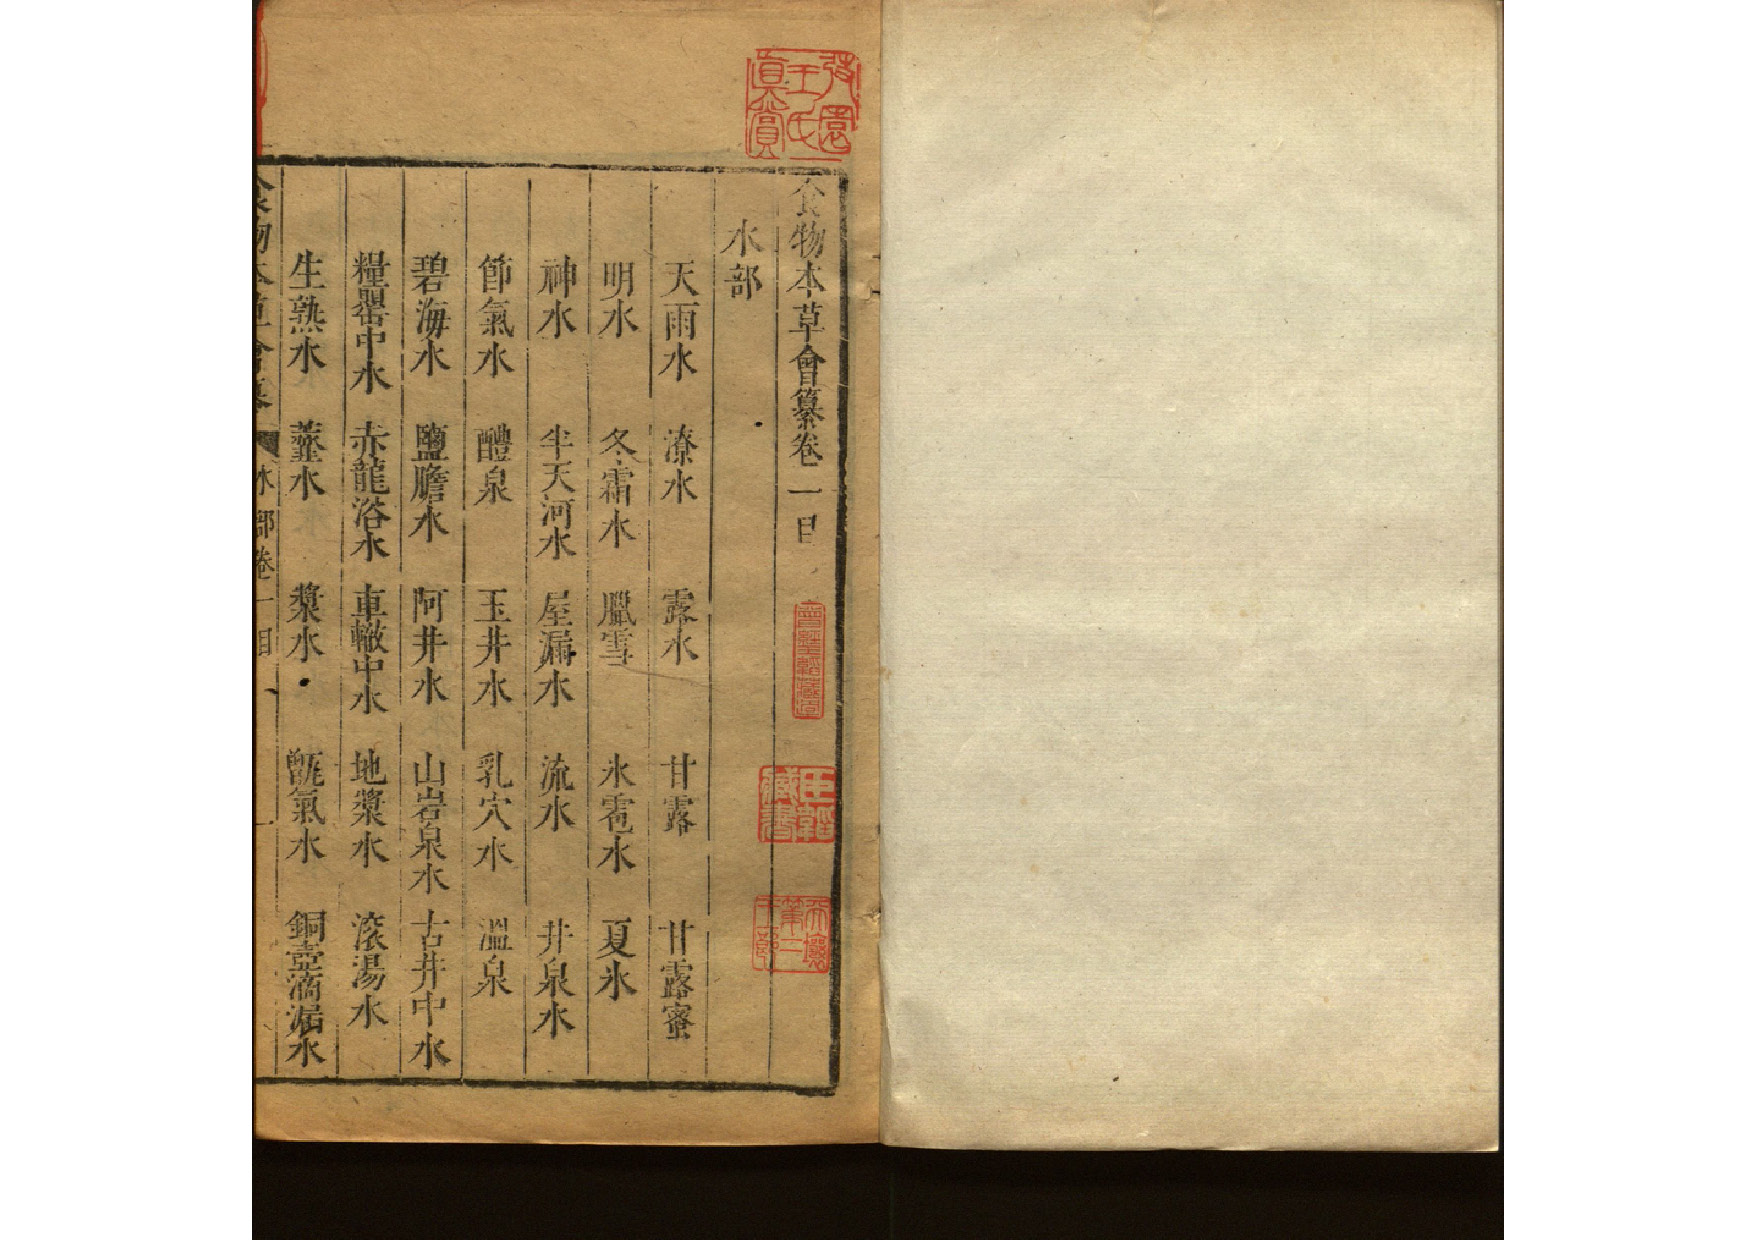 食物本草會纂卷一目
水部
天雨水 潦水 露水 甘露 甘露蜜
明水 冬霜水 臘雪 氷雹水 夏氷
神水 半天河水 屋漏水 流水 井泉水
節氣水 醴泉 玉井水 乳穴水 溫泉
碧海水 鹽膽水 阿井水 山岩泉水 古井中水
糧罌中水 赤龍浴水 車轍中水 地漿水 滾湯水
生熟水 虀水 漿水 甑氣水 銅壺滴漏水
食物本草會纂 水部卷一目 一